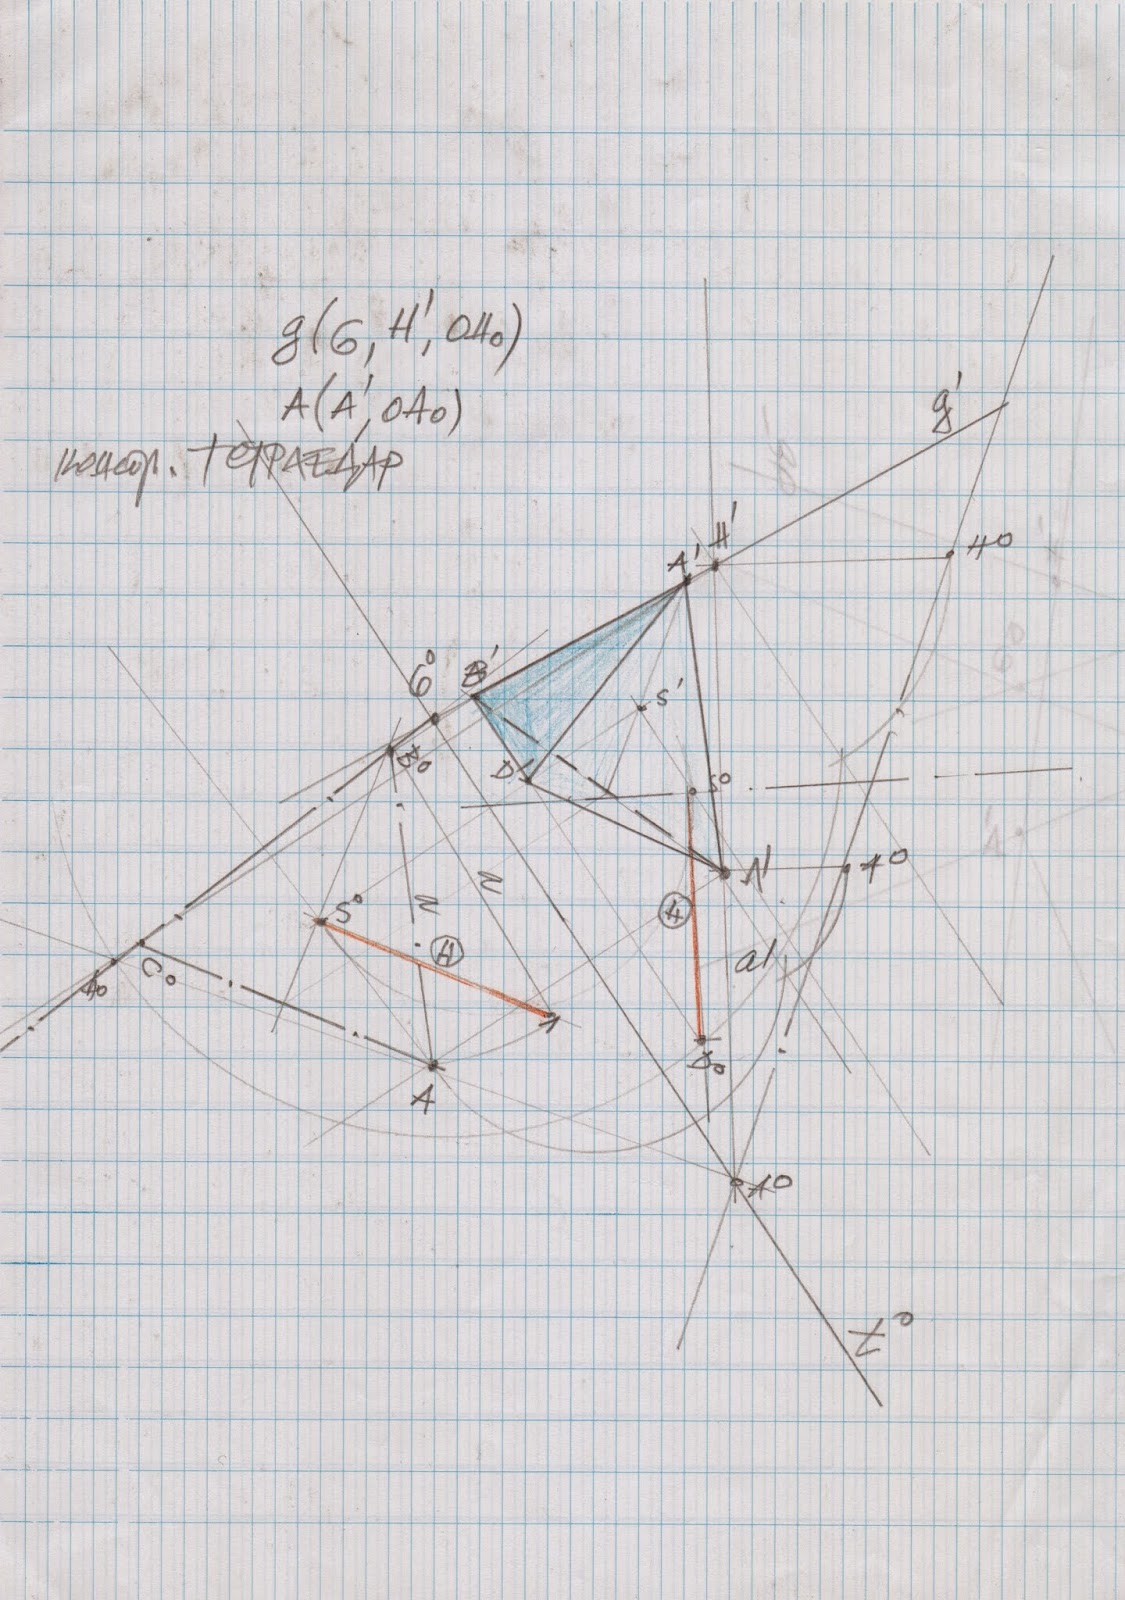 g(G, H', OH₀)
A(A', OA₀)
ТЕТРАЕДАР
g'
H'
H⁰
A'
B'
G⁰
S'
D'
B₀
S⁰
A'
A⁰
S⁰
H
H
a'
C⁰
A₀
1
D₀
A
A⁰
t⁰